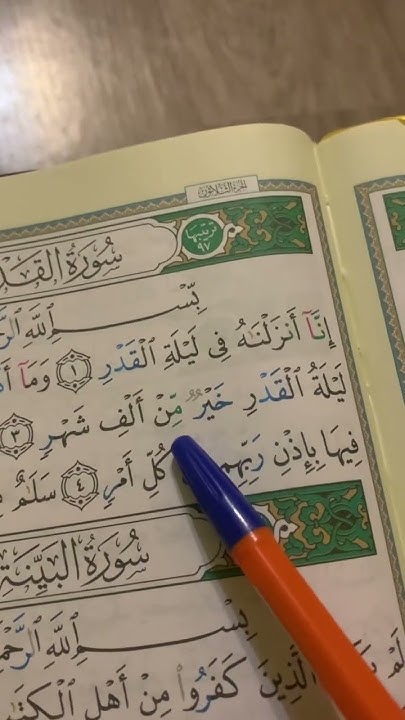 الجزء الثلاثون
ترتيبها ٩٧
سُورَةُ القَد
بِسْمِ ٱللَّهِ ٱلرَّ
إِنَّآ أَنزَلْنَـٰهُ فِى لَيْلَةِ ٱلْقَدْرِ ١ وَمَآ أ
لَيْلَةُ ٱلْقَدْرِ خَيْرٌ مِّنْ أَلْفِ شَهْرٍ ٣
فِيهَا بِإِذْنِ رَبِّهِم كُلِّ أَمْرٍ ٤ سَلَـٰمٌ
سُورَةُ البَيِّنَة
بِسْمِ ٱللَّهِ ٱلرَّحْمَ
لَمْ ٱلَّذِينَ كَفَرُوا۟ مِنْ أَهْلِ ٱلْكِتَـ